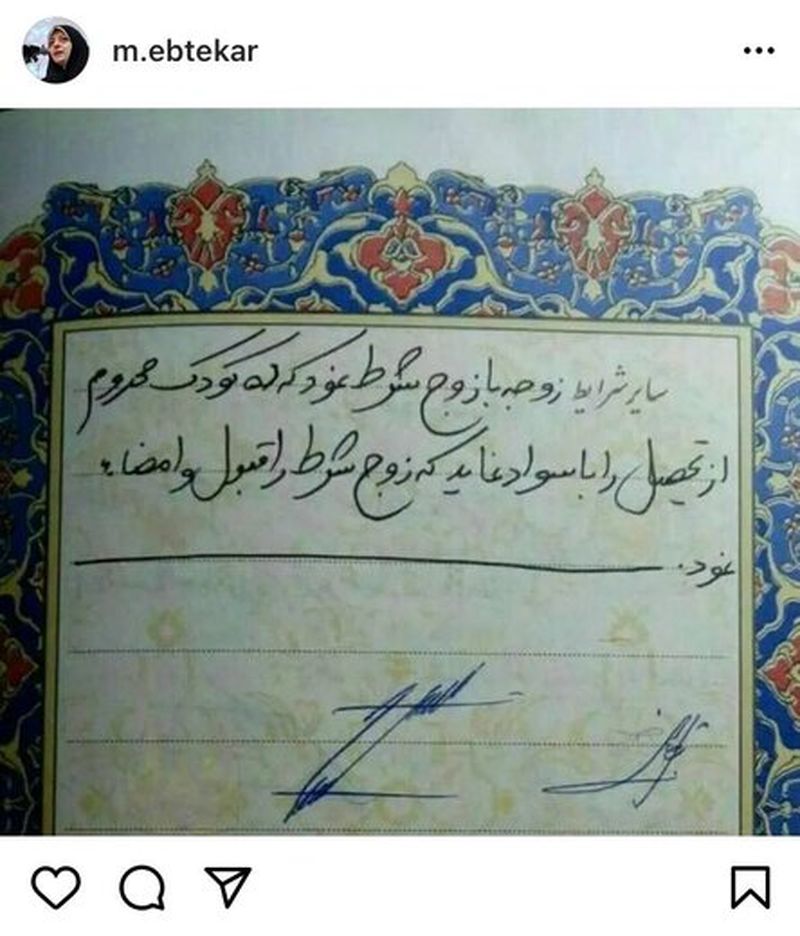 m.ebtekar
سایر شرایط زوجه با زوج شرط نمود که کودک محروم
از تحصیل را باسواد نماید که زوج شرط را قبول و امضاء
نمود.